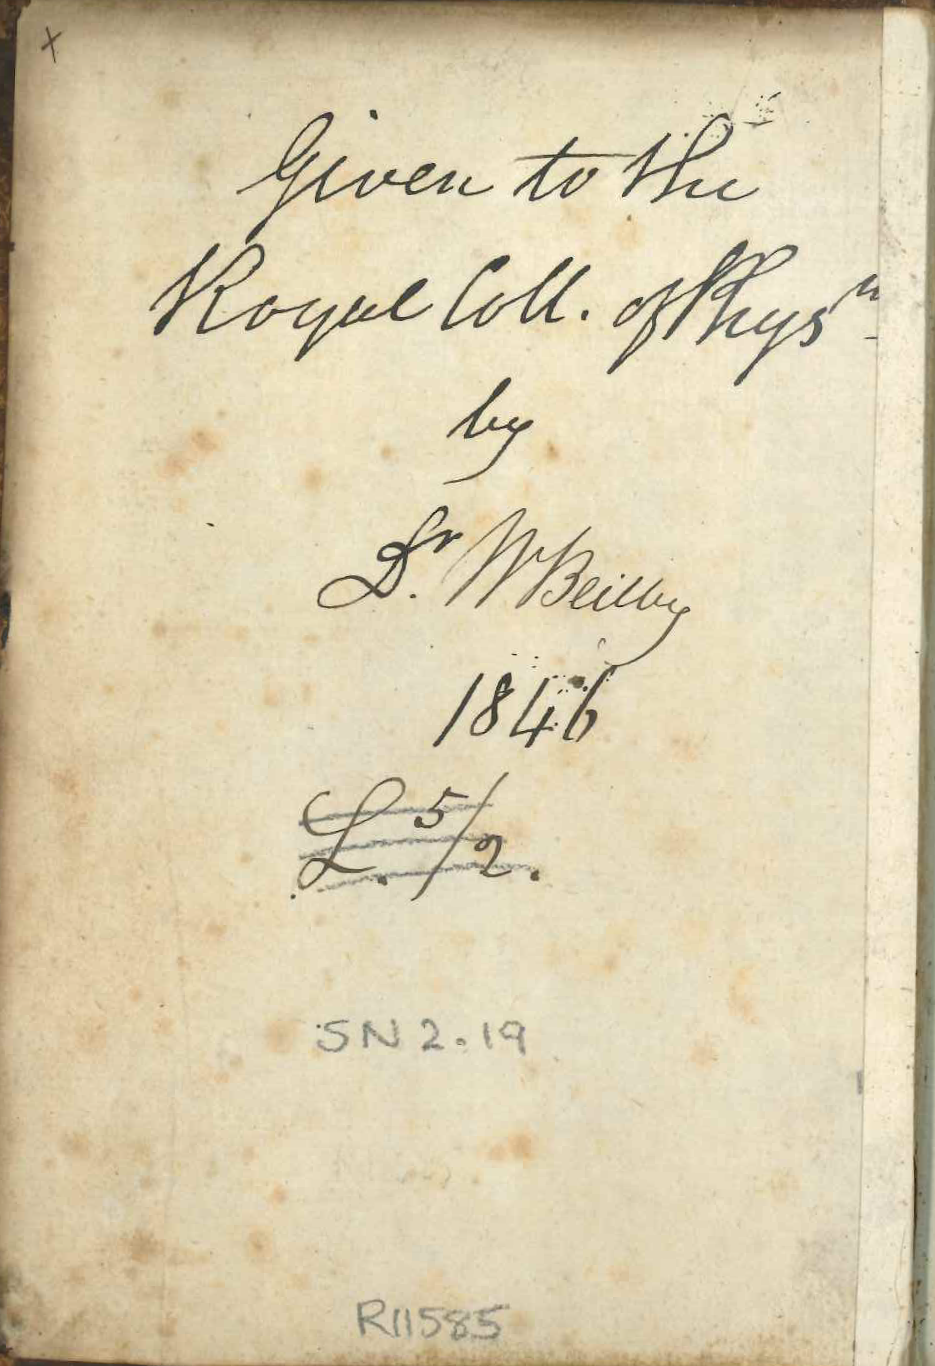 x
Given to the
Royal Coll. of Physn
by
Dr. W Beilby
1846
L. 5/2.
SN 2.19
R11585